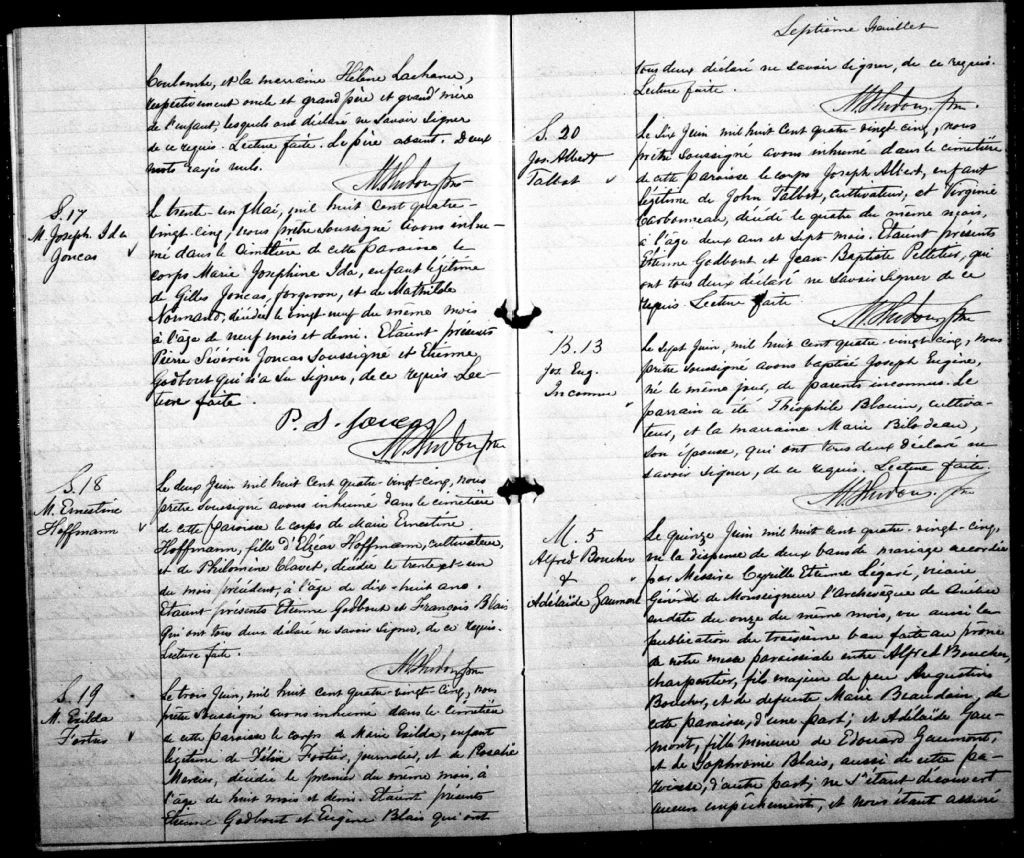 Coulombe, et la marraine Hélène Lachance,
respectivement oncle et grand'père et grand'mère
de l'enfant, lesquels ont déclaré ne savoir signer
de ce requis. Lecture faite. Le père absent. Deux
mots rayés nuls.
S. 17
M. Joseph. Ida
Joncas
Le trente-un Mai, mil huit cent quatre-
vingt-cinq, nous prêtre soussigné avons inhu-
mé dans le cimetière de cette paroisse le
corps Marie Josephine Ida, enfant légitime
de Gilles Joncas, forgeron, et de Mathilde
Normand, décédée le vingt-neuf du même mois
à l'âge de neuf mois et demi. Etaient présents
Pierre Sévérin Joncas soussigné et Etienne
Godbout qui n'a su signer, de ce requis Lec-
ture faite.
P. S. Joncas
S. 18
M. Ernestine
Hoffmann
Le deux Juin mil huit cent quatre-vingt-cinq, nous
prêtre soussigné avons inhumé dans le cimetière
de cette paroisse le corps de Marie Ernestine
Hoffmann, fille d'Elzéar Hoffmann, cultivateur,
et de Philomène Clavet, décédée le trente-et-un
du mois précédent, à l'âge de dix-huit ans.
Etaient présents Etienne Godbout et François Blais
qui ont tous deux déclaré ne savoir signer, de ce requis.
Lecture faite.
S. 19
M. Exilda
Fortier
Le trois Juin, mil huit cent quatre-vingt-cinq, nous
prêtre soussigné avons inhumé dans le cimetière
de cette paroisse le corps de Marie Exilda, enfant
légitime de Félix Fortier, journalier, et de Rosalie
Mercier, décédée le premier du même mois, à
l'âge de huit mois et demi. Etaient présents
Etienne Godbout et Eugène Blais qui ont
Septième Feuillet
tous deux déclaré ne savoir signer, de ce requis.
Lecture faite.
S. 20
Jos. Albert
Talbot
Le six Juin mil huit cent quatre-vingt-cinq, nous
prêtre soussigné avons inhumé dans le cimetière
de cette paroisse le corps Joseph Albert, enfant
légitime de John Talbot, cultivateur, et Virginie
Carbonneau, décédé le quatre du même mois,
à l'âge deux ans et sept mois. Etaient présents
Etienne Godbout et Jean-Baptiste Pelletier, qui
ont tous deux déclaré ne savoir signer de ce
requis Lecture faite
B. 13
Jos. Eug.
Inconnu
Le sept Juin, mil huit cent quatre-vingt-cinq, nous
prêtre soussigné avons baptisé Joseph Eugène,
né le même jour, de parents inconnus. Le
parrain a été Théophile Blouin, cultiva-
teur, et la marraine Marie Bilodeau,
son épouse, qui ont tous deux déclaré ne
savoir signer, de ce requis. Lecture faite.
M. 5
Alfred Boucher
&
Adélaïde Gaumont
Le quinze Juin mil huit cent quatre-vingt-cinq,
vu la dispense de deux bans de mariage accordée
par Messire Cyrille Etienne Légaré, vicaire
Général de Monseigneur l'Archevêque de Québec
en date du onze du même mois, vu aussi la
publication du troisième ban faite au prône
de notre messe paroissiale entre Alfred Boucher,
charpentier, fils majeur de feu Augustin
Boucher, et de défunte Marie Beaudoin, de
cette paroisse, d'une part; et Adélaïde Gau-
mont, fille mineure de Edouard Gaumont,
et de Sophronie Blais, aussi de cette pa-
roisse, d'autre part; ne s'étant découvert
aucun empêchement, et nous étant assuré